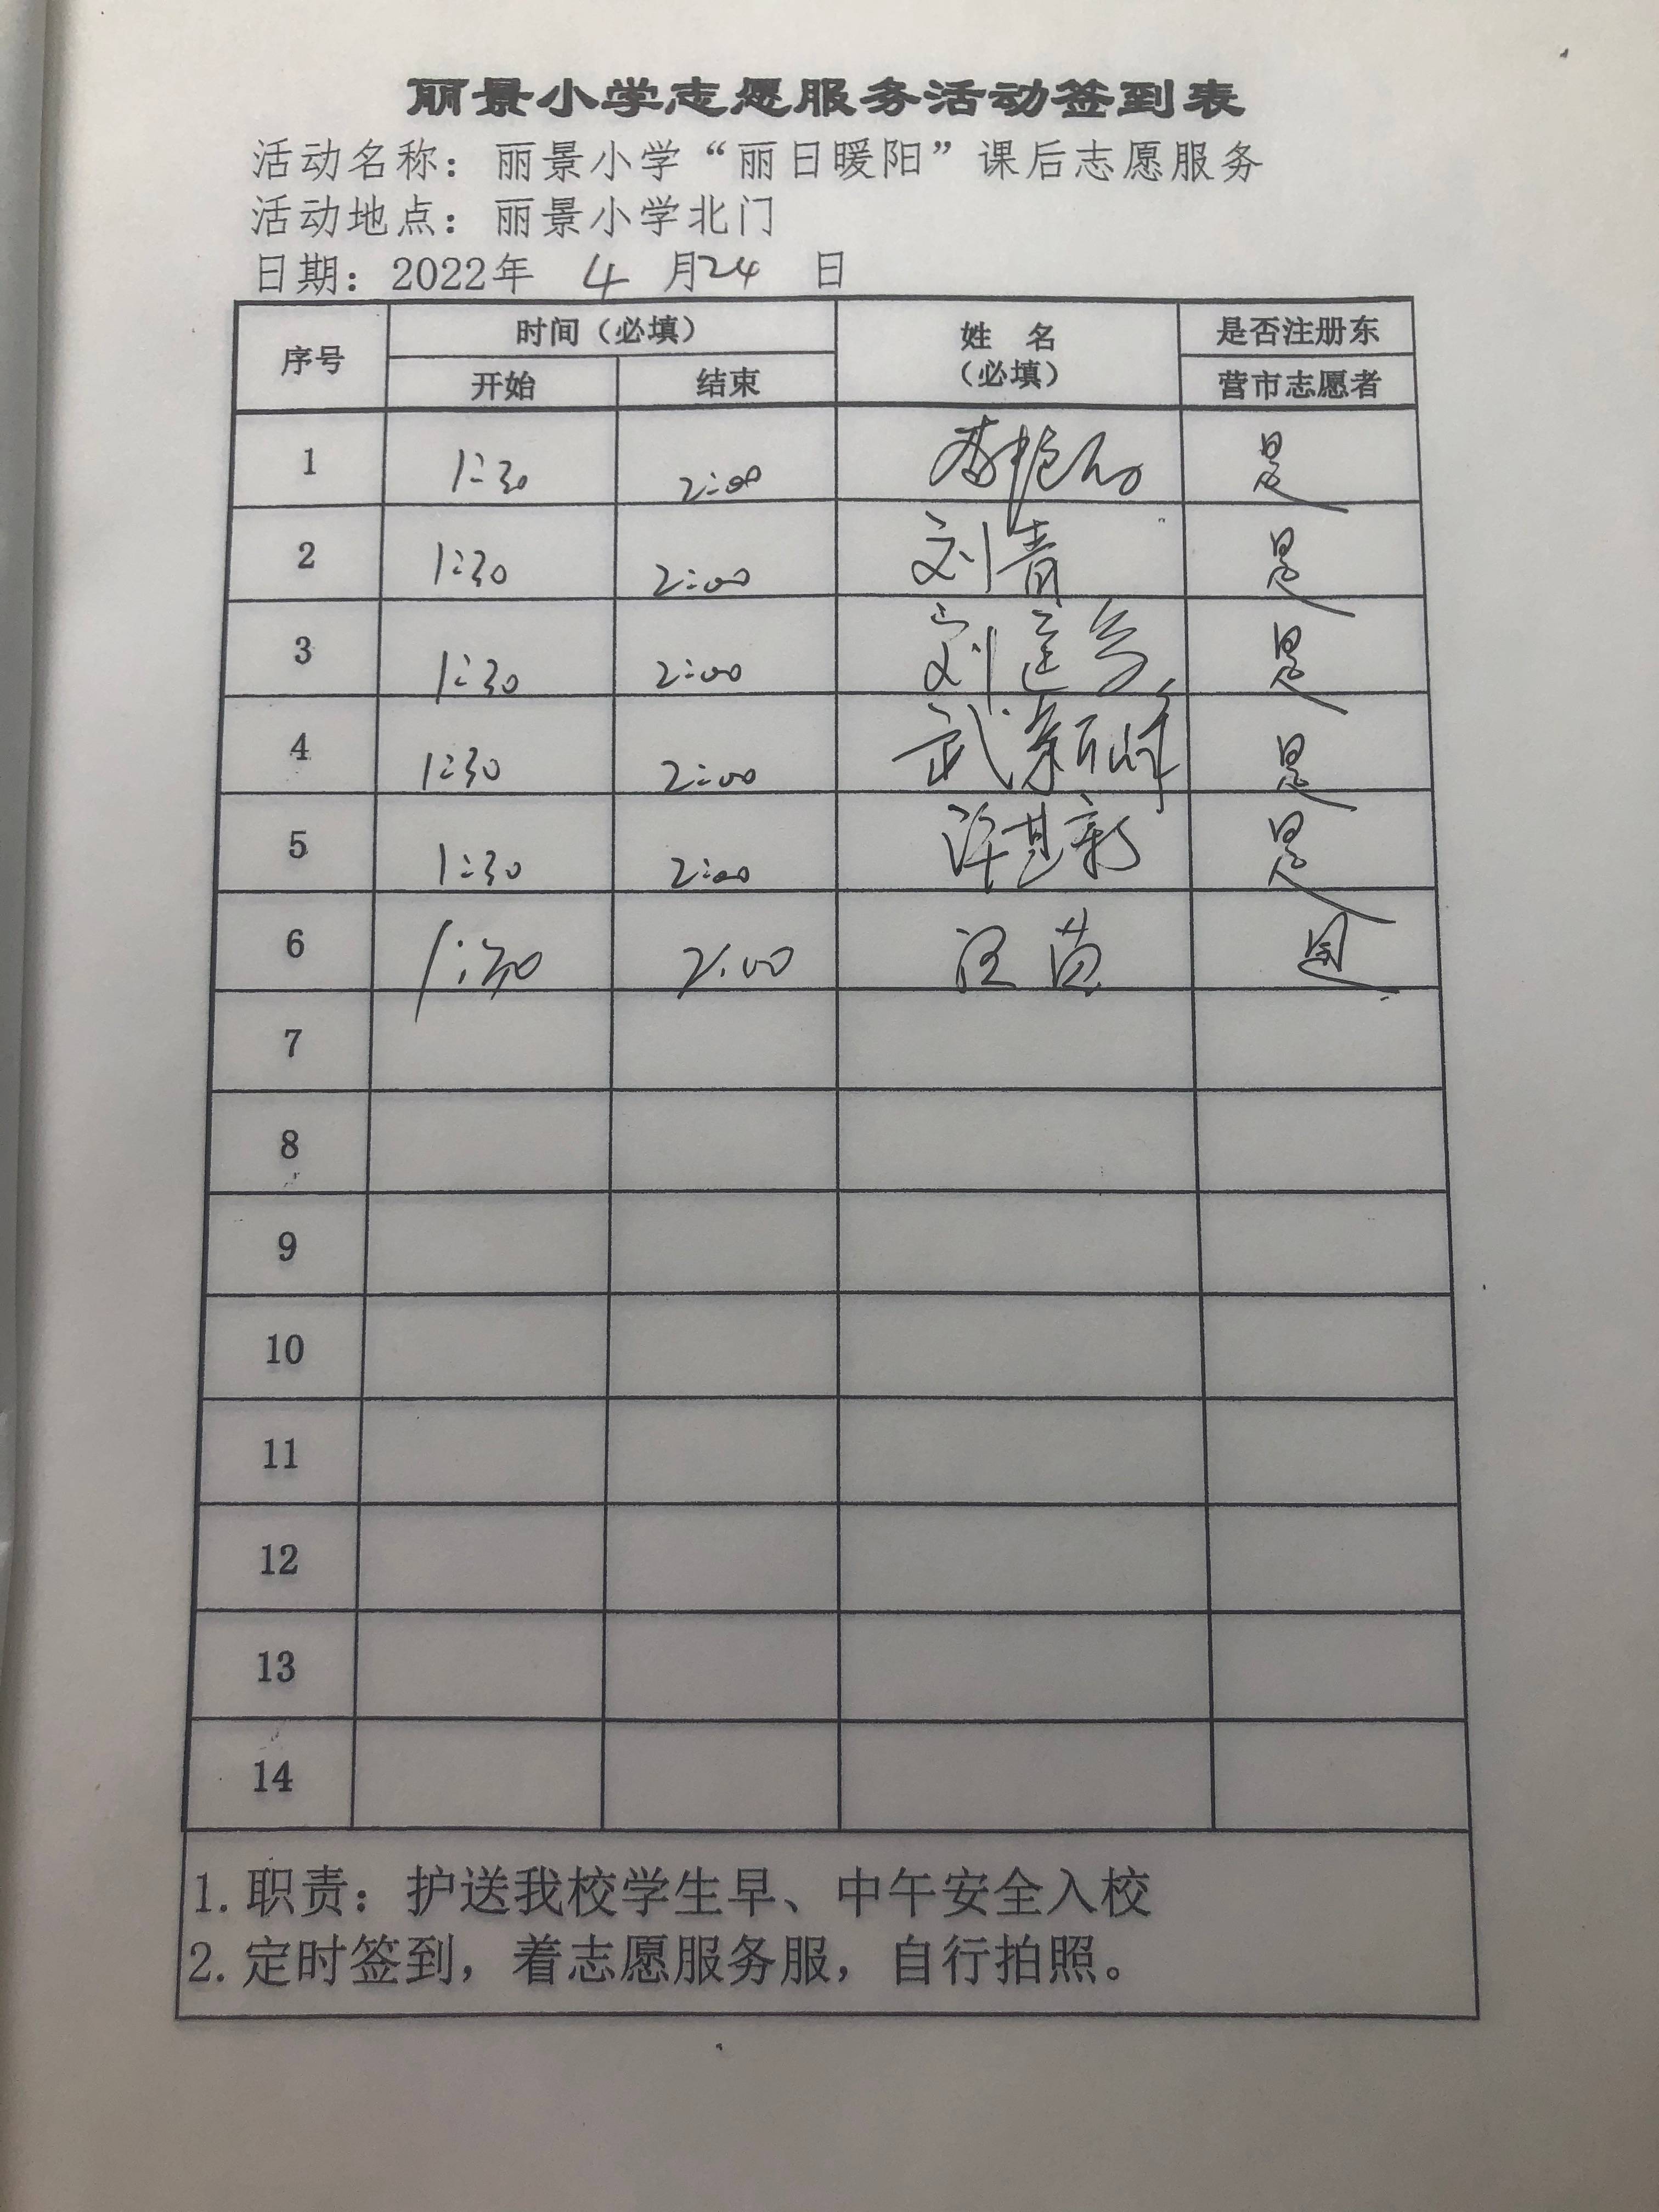 丽景小学志愿服务活动签到表
活动名称：丽景小学“丽日暖阳”课后志愿服务
活动地点：丽景小学北门
日期：2022年 4 月24 日
序号 时间（必填） 姓 名（必填） 是否注册东营市志愿者
开始 结束
1 1:30 2:00 是
2 1:30 2:00 刘青 是
3 1:30 2:00 刘 是
4 1:30 2:00 武新峰 是
5 1:30 2:00 许甚新 是
6 1:30 2:00 汪苗 是
7
8
9
10
11
12
13
14
1.职责：护送我校学生早、中午安全入校
2.定时签到，着志愿服务服，自行拍照。